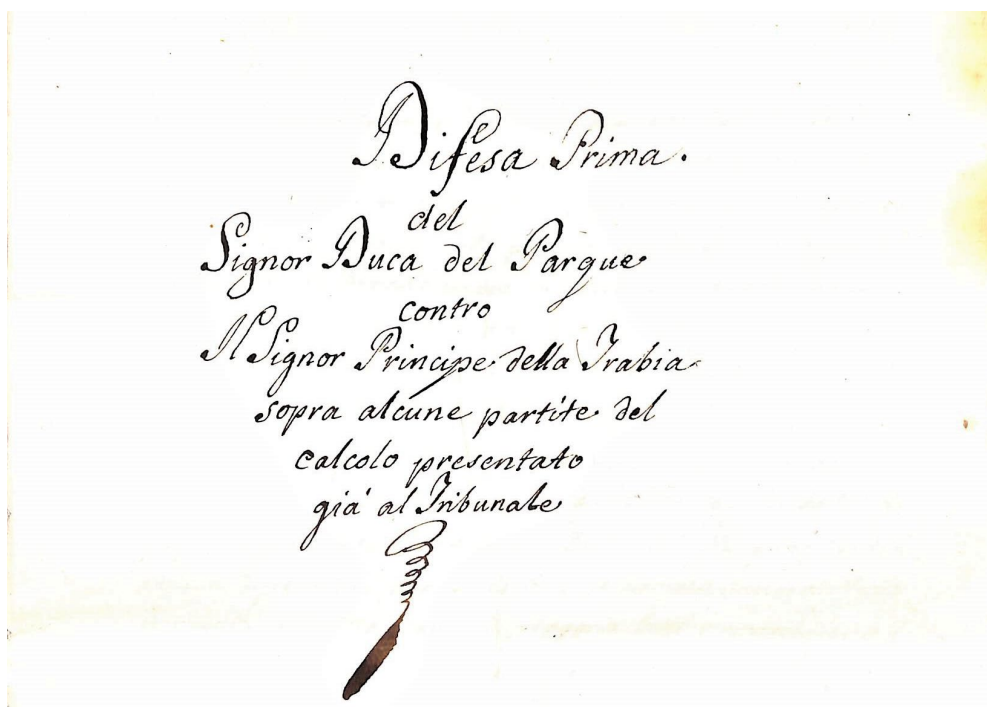 Difesa Prima.
del
Signor Duca del Parque
contro
Il Signor Principe della Trabia
sopra alcune partite del
calcolo presentato
già al Tribunale